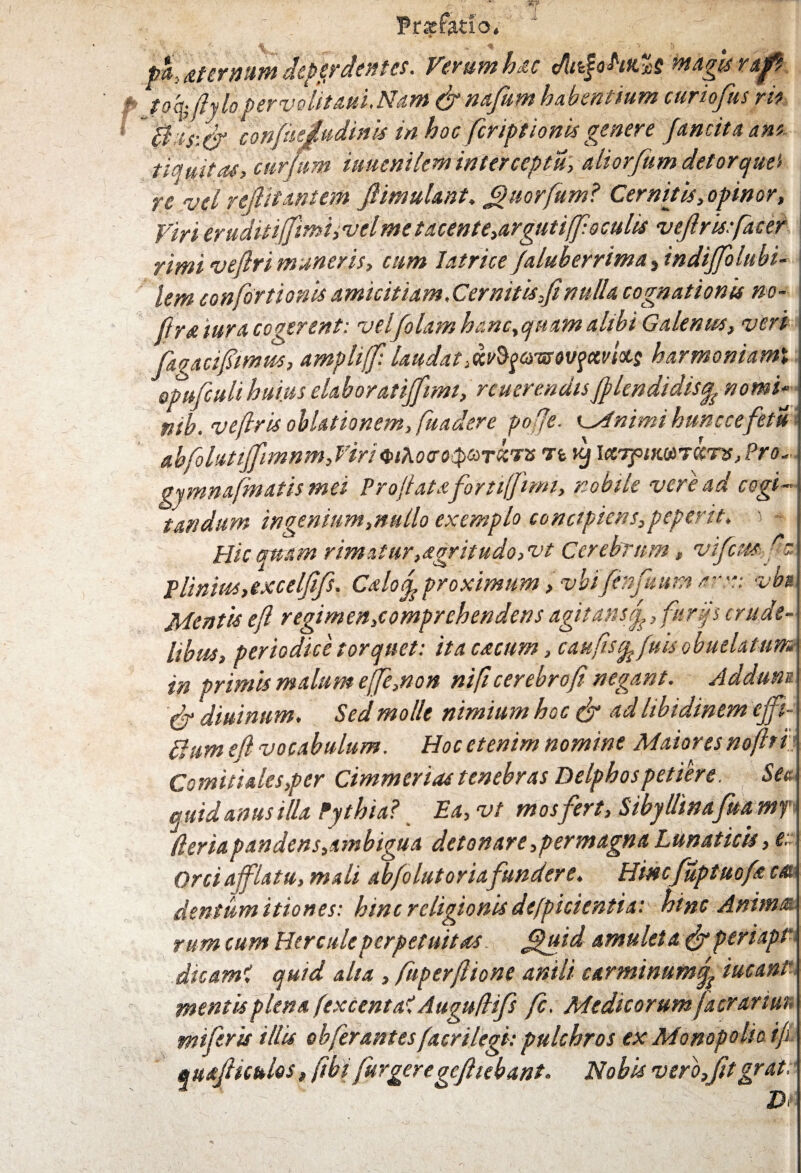 Præfatio.
pa, æternum deperdentes. Verum hæc magis rapti
toq; stylo pervolitaui. Nam & nasum habentium curiosus ri-
ctus: & consuetudinis in hoc scriptionis genere sancita an-
tiquitas, cursum iuuenilem interceptū, aliorsum detorquet
re vel restitantem stimulant. Quorsum? Cernitis, opinor,
Viri eruditissimi, vel me tacente, argutiss: oculis vestris: sacer
rimi vestri muneris, cum Iatrice saluberrima, indissolubi-
lem consortionis amicitiam. Cernitis, si nulla cognationis no-
stræ iura cogerent: vel solam hanc, quam alibi Galenus, veri
sagacissimus, ampliss: laudat, harmoniam:
opusculi huius elaboratissimi, reuerendis splendidisq; nomi-
nib. vestris oblationem, suadere posse. Animi huncce fetū
absolutissimnm, Viri Φιλοσοφωτάτȣ τε κ̀ Ιατρικωτάτȣ, Pro-
gymnasmatis mei Prostatæ fortissimi, nobile vere ad cogi-
tandum ingenium, nullo exemplo concipiens, peperit.
Hic quam rimatur, ægritudo, vt Cerebrum, viscus
Plinius, excelsiss. Cæloq; proximum, vbi sensuum arx: vbi
Mentis est regimen, comprehendens agitansq;, furijs crude-
libus, periodice torquet: ita cæcum, causisq; suis obuelatum
in primis malum esse, non nisi cerebrosi negant. Addunt
& diuinum. Sed molle nimium hoc & ad libidinem effi-
ctum est vocabulum. Hoc etenim nomine Maiores nostri
Comitiales, per Cimmerias tenebras Delphos petiere. Sed
quid anus illa Pythia? Ea, vt mos fert, Sibyllina sua my-
steria pandens, ambigua detonare, permagna Lunaticis, e
Orci afflatu, mali absolutoria fundere. Hinc sūptuosæ ca
dentūm itiones: hinc religionis despicientia: hinc Anima
rum cum Hercule perpetuitas. Quid amuleta & periapt
dicam? quid alia, superstione anili carminumq; iucant
mentis plena sexcenta? Augustiss sc. Medicorum sacrarium
miseris illis obserantes sacrilegi: pulchros ex Monopolio
quæsticulos, sibi surgere gestiebant. Nobis vero, sit grat.